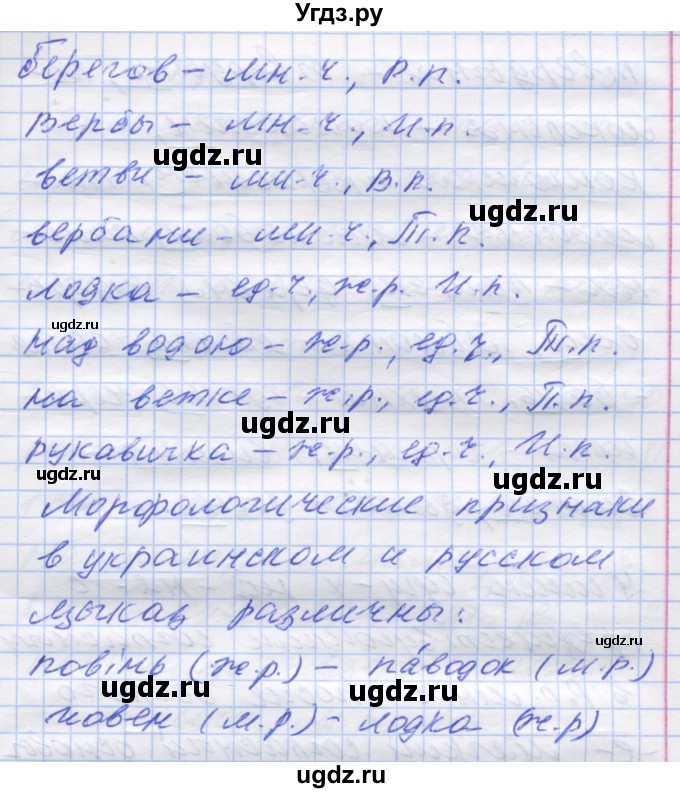 Угдз.ру
берегов – мн.ч., Р.п.
Вербы – мн.ч., И.п.
ugdz.ru
ветви – мн.ч., В.п.
ugdz.ru
вербами – мн.ч., Т.п.
лодка – ед.ч., ж.р. И.п.
ugdz.ru
над водою – ж.р., ед.ч., Т.п.
на ветке – ж.р., ед.ч., П.п.
ugdz.ru
рукавичка – ж.р., ед.ч., И.п.
ugdz.ru
ugdz.ru
Морфологические признаки
в украинском и русском
языках различны:
ugdz.ru
повінь (ж.р.) – па́водок (м.р.)
ugdz.ru ugdz.ru
човен (м.р.) – лодка (ж.р)
ugdz.ru